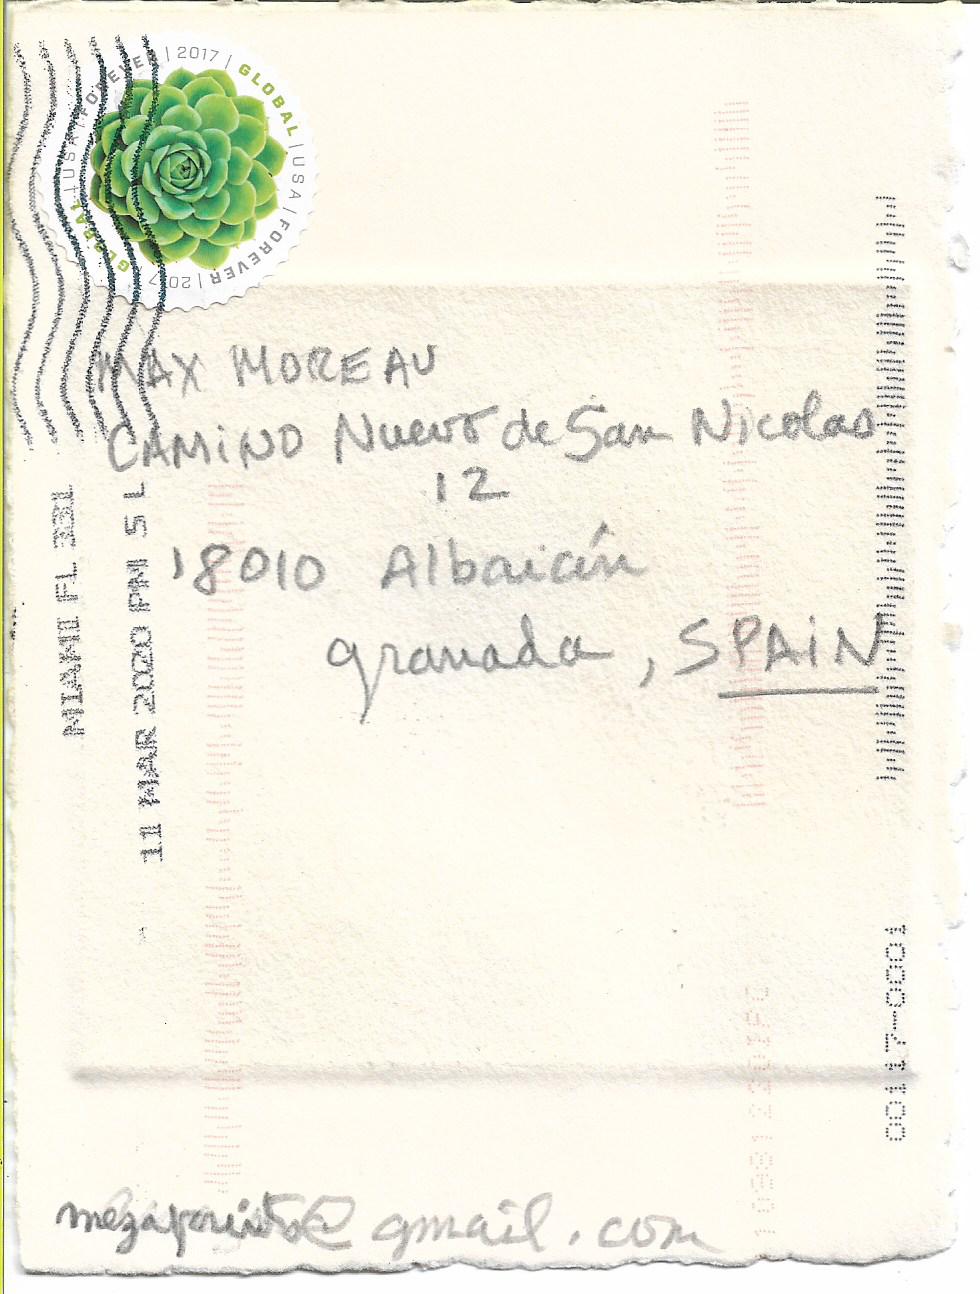 FOREVER | 2017 | GLOBAL | USA | FOREVER | 2017 | GLOBAL | USA |
MAX MOREAU
CAMINO Nuevo de San Nicolas
12
18010 Albaicín
granada, SPAIN
MIAMI FL 331
11 MAR 2020 PM 5 L
00117-0001
@gmail.com